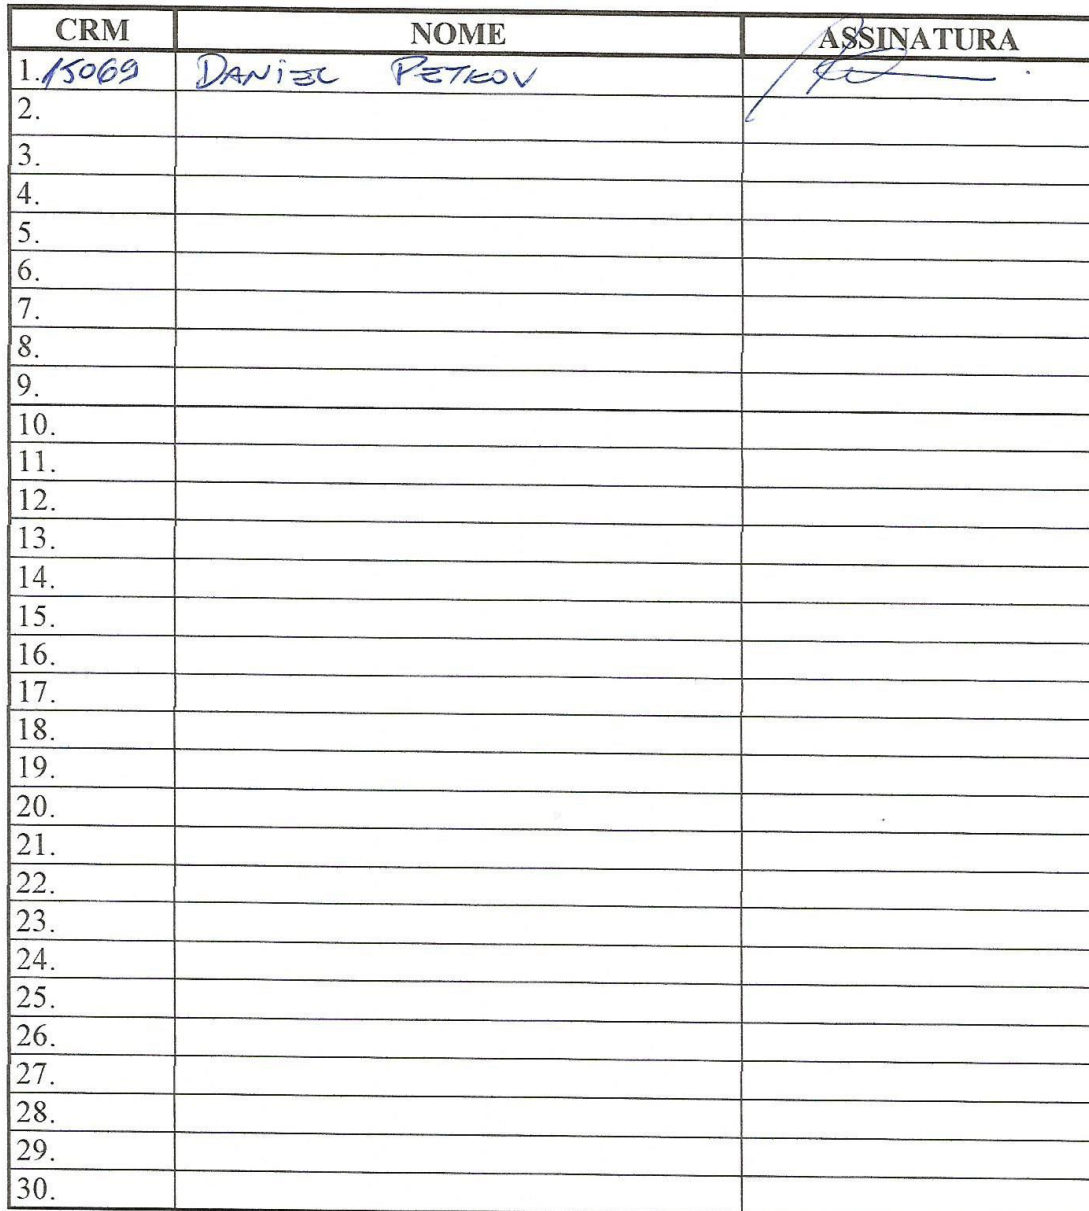 CRM NOME ASSINATURA
1. 15069 DANiEL PETKOV
2.
3.
4.
5.
6.
7.
8.
9.
10.
11.
12.
13.
14.
15.
16.
17.
18.
19.
20.
21.
22.
23.
24.
25.
26.
27.
28.
29.
30.